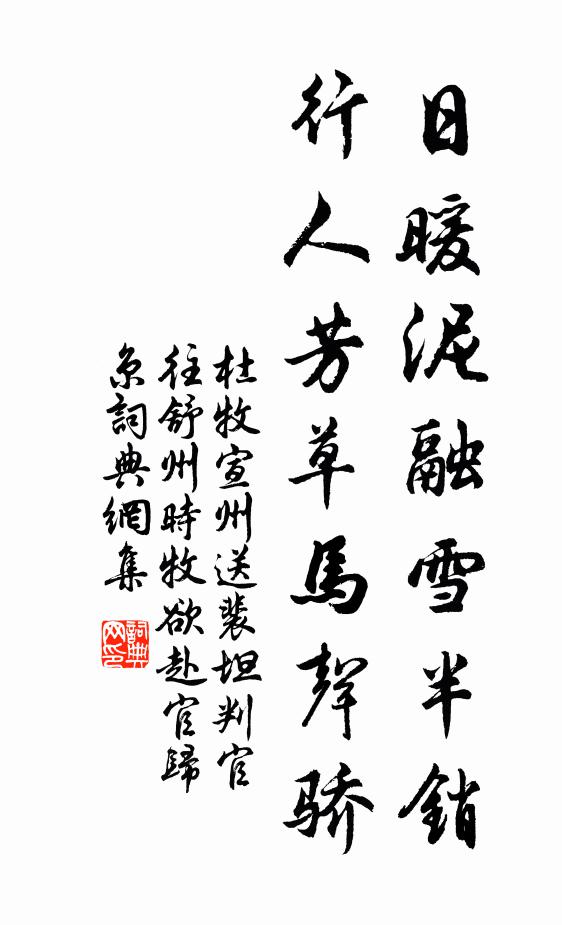 日暖泥融雪半銷
行人芳草馬聲骄
杜牧宣州送裴坦判官
往舒州時牧欲赴官歸
京詞典網集
詞典
网印